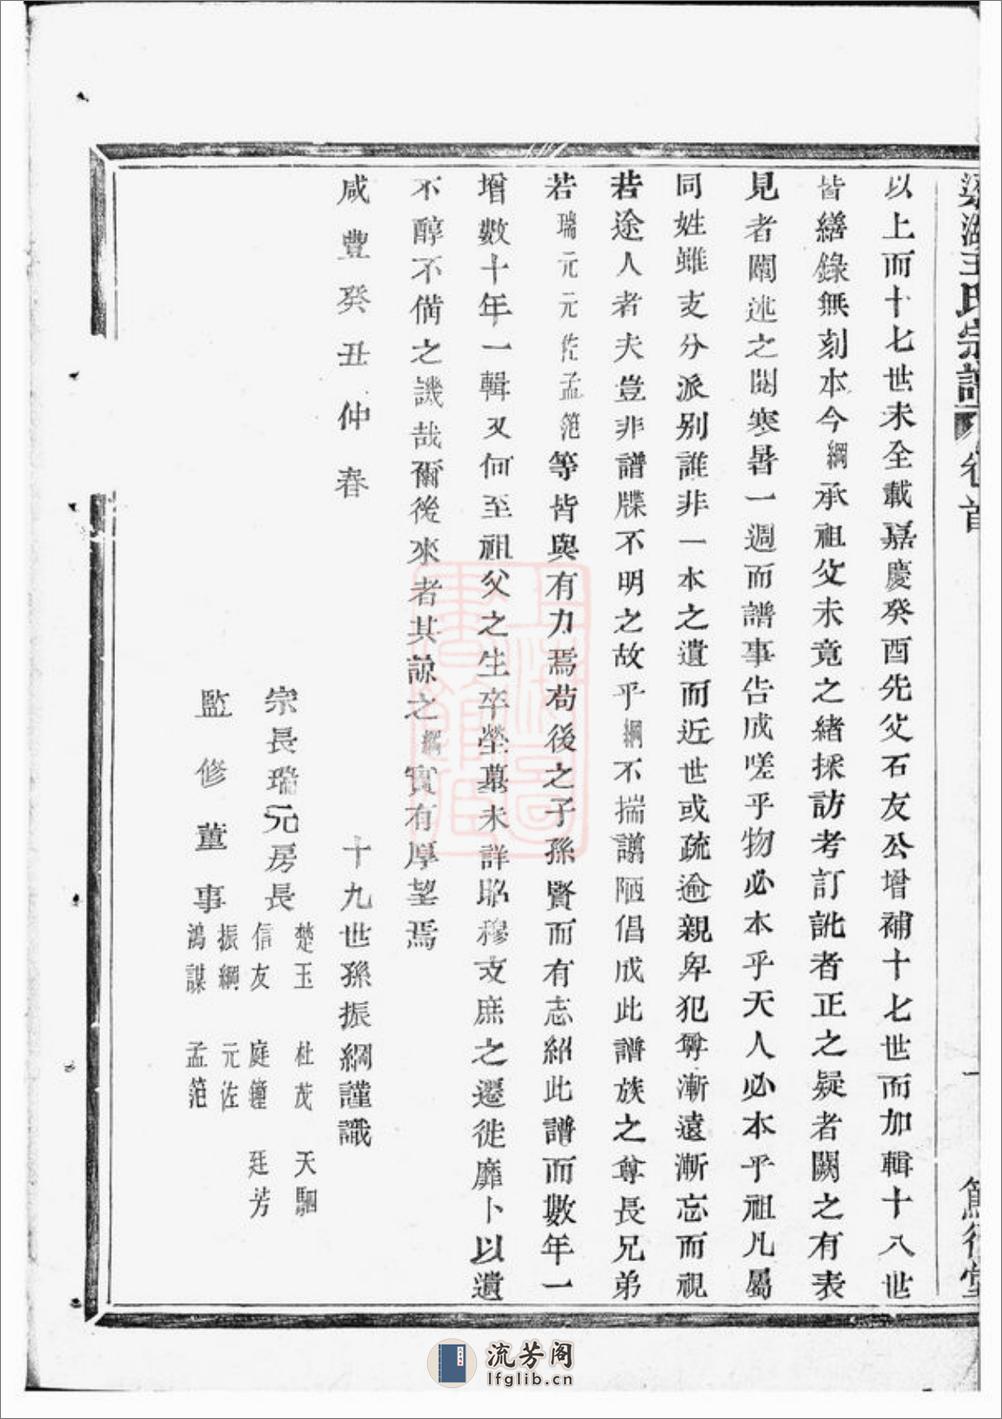 梁湖王氏宗譜 卷首 一 篤行堂
以上而十七世未全載嘉慶癸酉先父石友公增補十七世而加輯十八世
皆繕錄無刻本今綱承祖父未竟之緒採訪考訂訛者正之疑者闕之有表
見者闡述之閱寒暑一週而譜事告成嗟乎物必本乎天人必本乎祖凡屬
同姓雖支分派别誰非一本之遺而近世或疏逾親卑犯尊漸遠漸忘而視
若途人者夫豈非譜牒不明之故乎綱不揣譾陋倡成此譜族之尊長兄弟
若瑞元元佐孟範等皆與有力焉苟後之子孫賢而有志紹此譜而數年一
增數十年一輯又何至祖父之生卒塋墓未詳昭穆支庶之遷徙靡卜以遺
不醇不備之譏哉爾後來者其諒之綱實有厚望焉
咸豐癸丑仲春
十九世孫振綱謹識
宗長瑞元房長
楚玉 杜茂 天駰
信友 庭鍾 廷芳
監修董事
振綱 元佐
鴻謀 孟範
上海圖書館藏
流芳阁
lfglib.cn